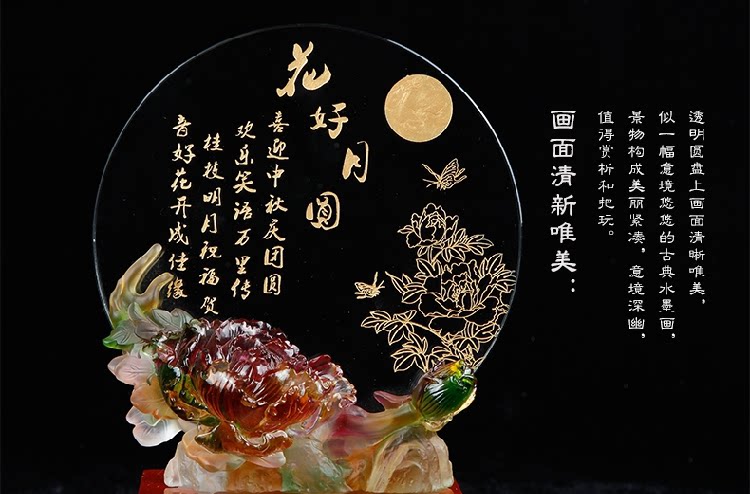 花好月圆
喜迎中秋庆团圆
欢乐笑语万里传
桂枝明月祝福贺
音好花开成佳缘
画面清新唯美：
透明圆盘上画面清晰唯美，
似一幅意境悠悠的古典水墨画，
景物构成美丽紧凑，意境深幽，
值得赏析和把玩。